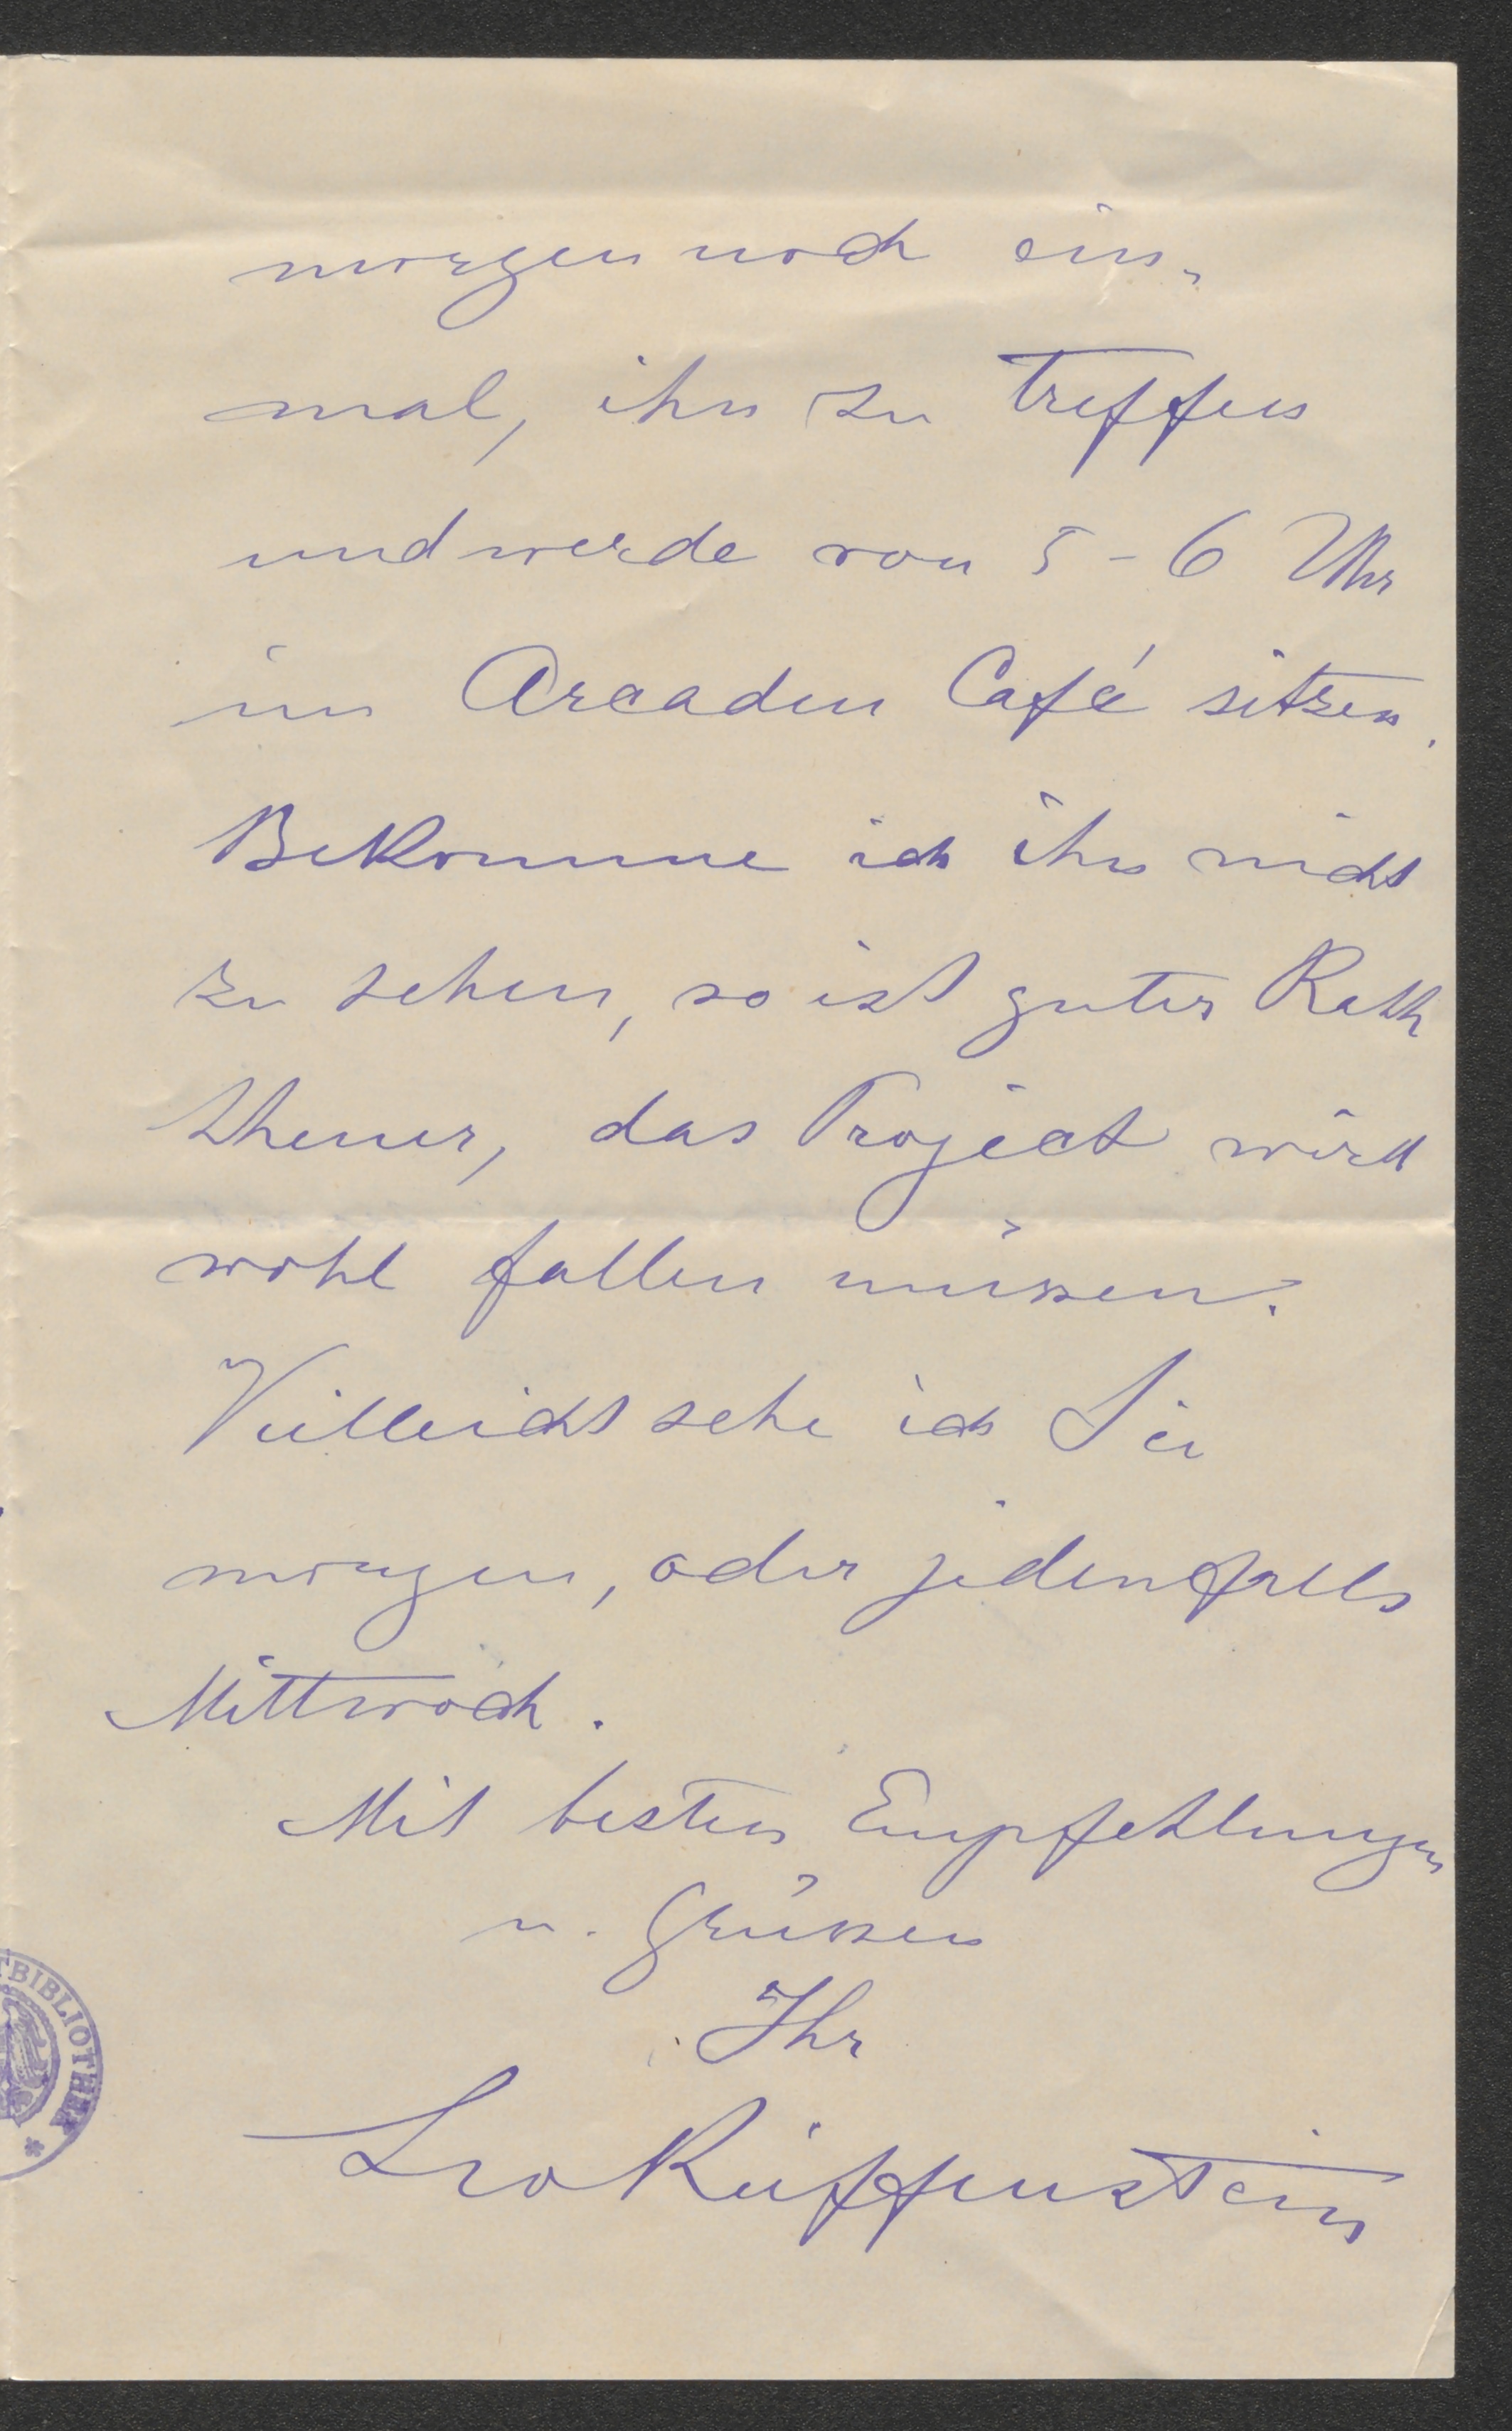 morgen noch ein-
mal, ihn zu treffen
und werde von 5-6 Uhr
im Arcaden Café sitzen.
Bekomme ich ihn nicht
zu sehen, so ist guter Rath
theuer, das Project wird
wohl fallen müssen.
Vielleicht sehe ich Sie
morgen, oder jedenfalls
Mittwoch.
Mit besten Empfehlungen
u. Grüssen
Ihr
Leo Reiffenstein
TBIBLIOTHEK *